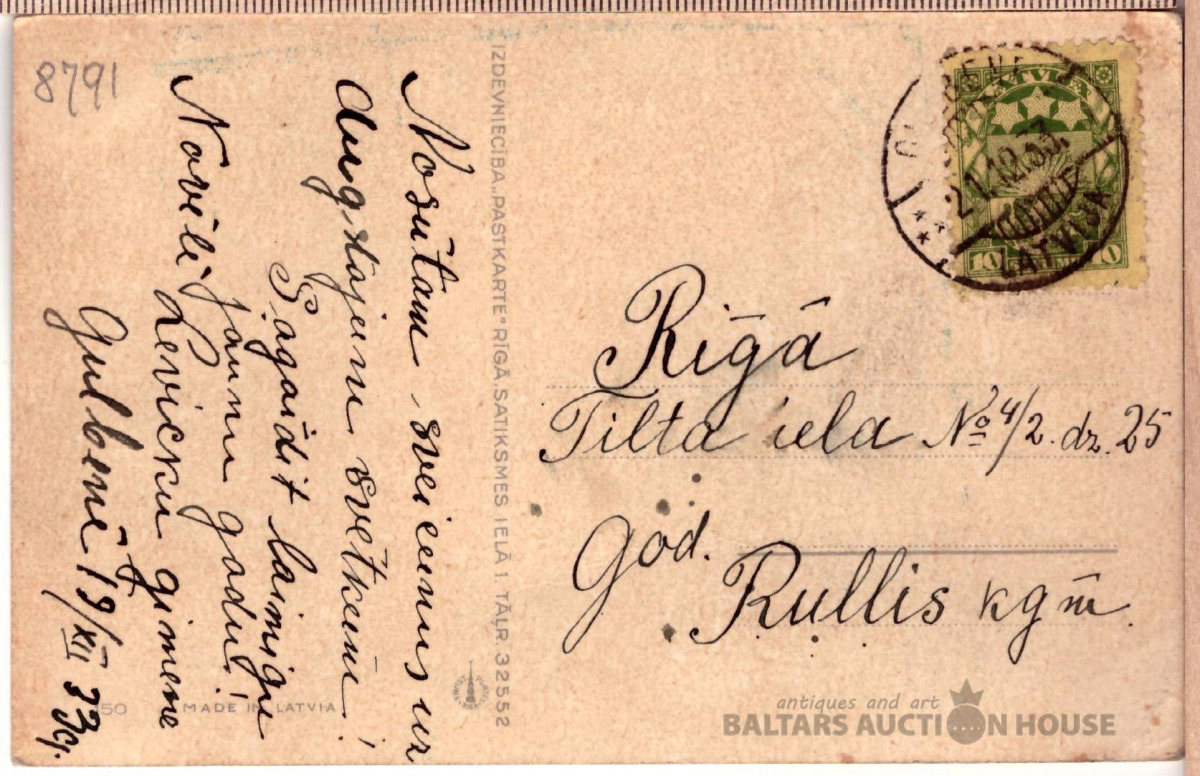 8791
Nosūtam sveicienus uz
Augstajiem svētkiem!
Sagaidīt laimīgu
jaunu gadu!
Novēl Levicku ģimene
Gulbenē 19/XII 33g.
IZDEVNIECĪBA „PASTKARTE" RĪGĀ, SATIKSMES IELĀ 1. TĀLR. 32552
MADE IN LATVIA
LATVIJA
21.12.33.
LATVIJA
10 10
Rīgā
Tilta iela № 4/2. dz. 25
God.
Rullis kgm
antiques and art
BALTARS AUCTION HOUSE